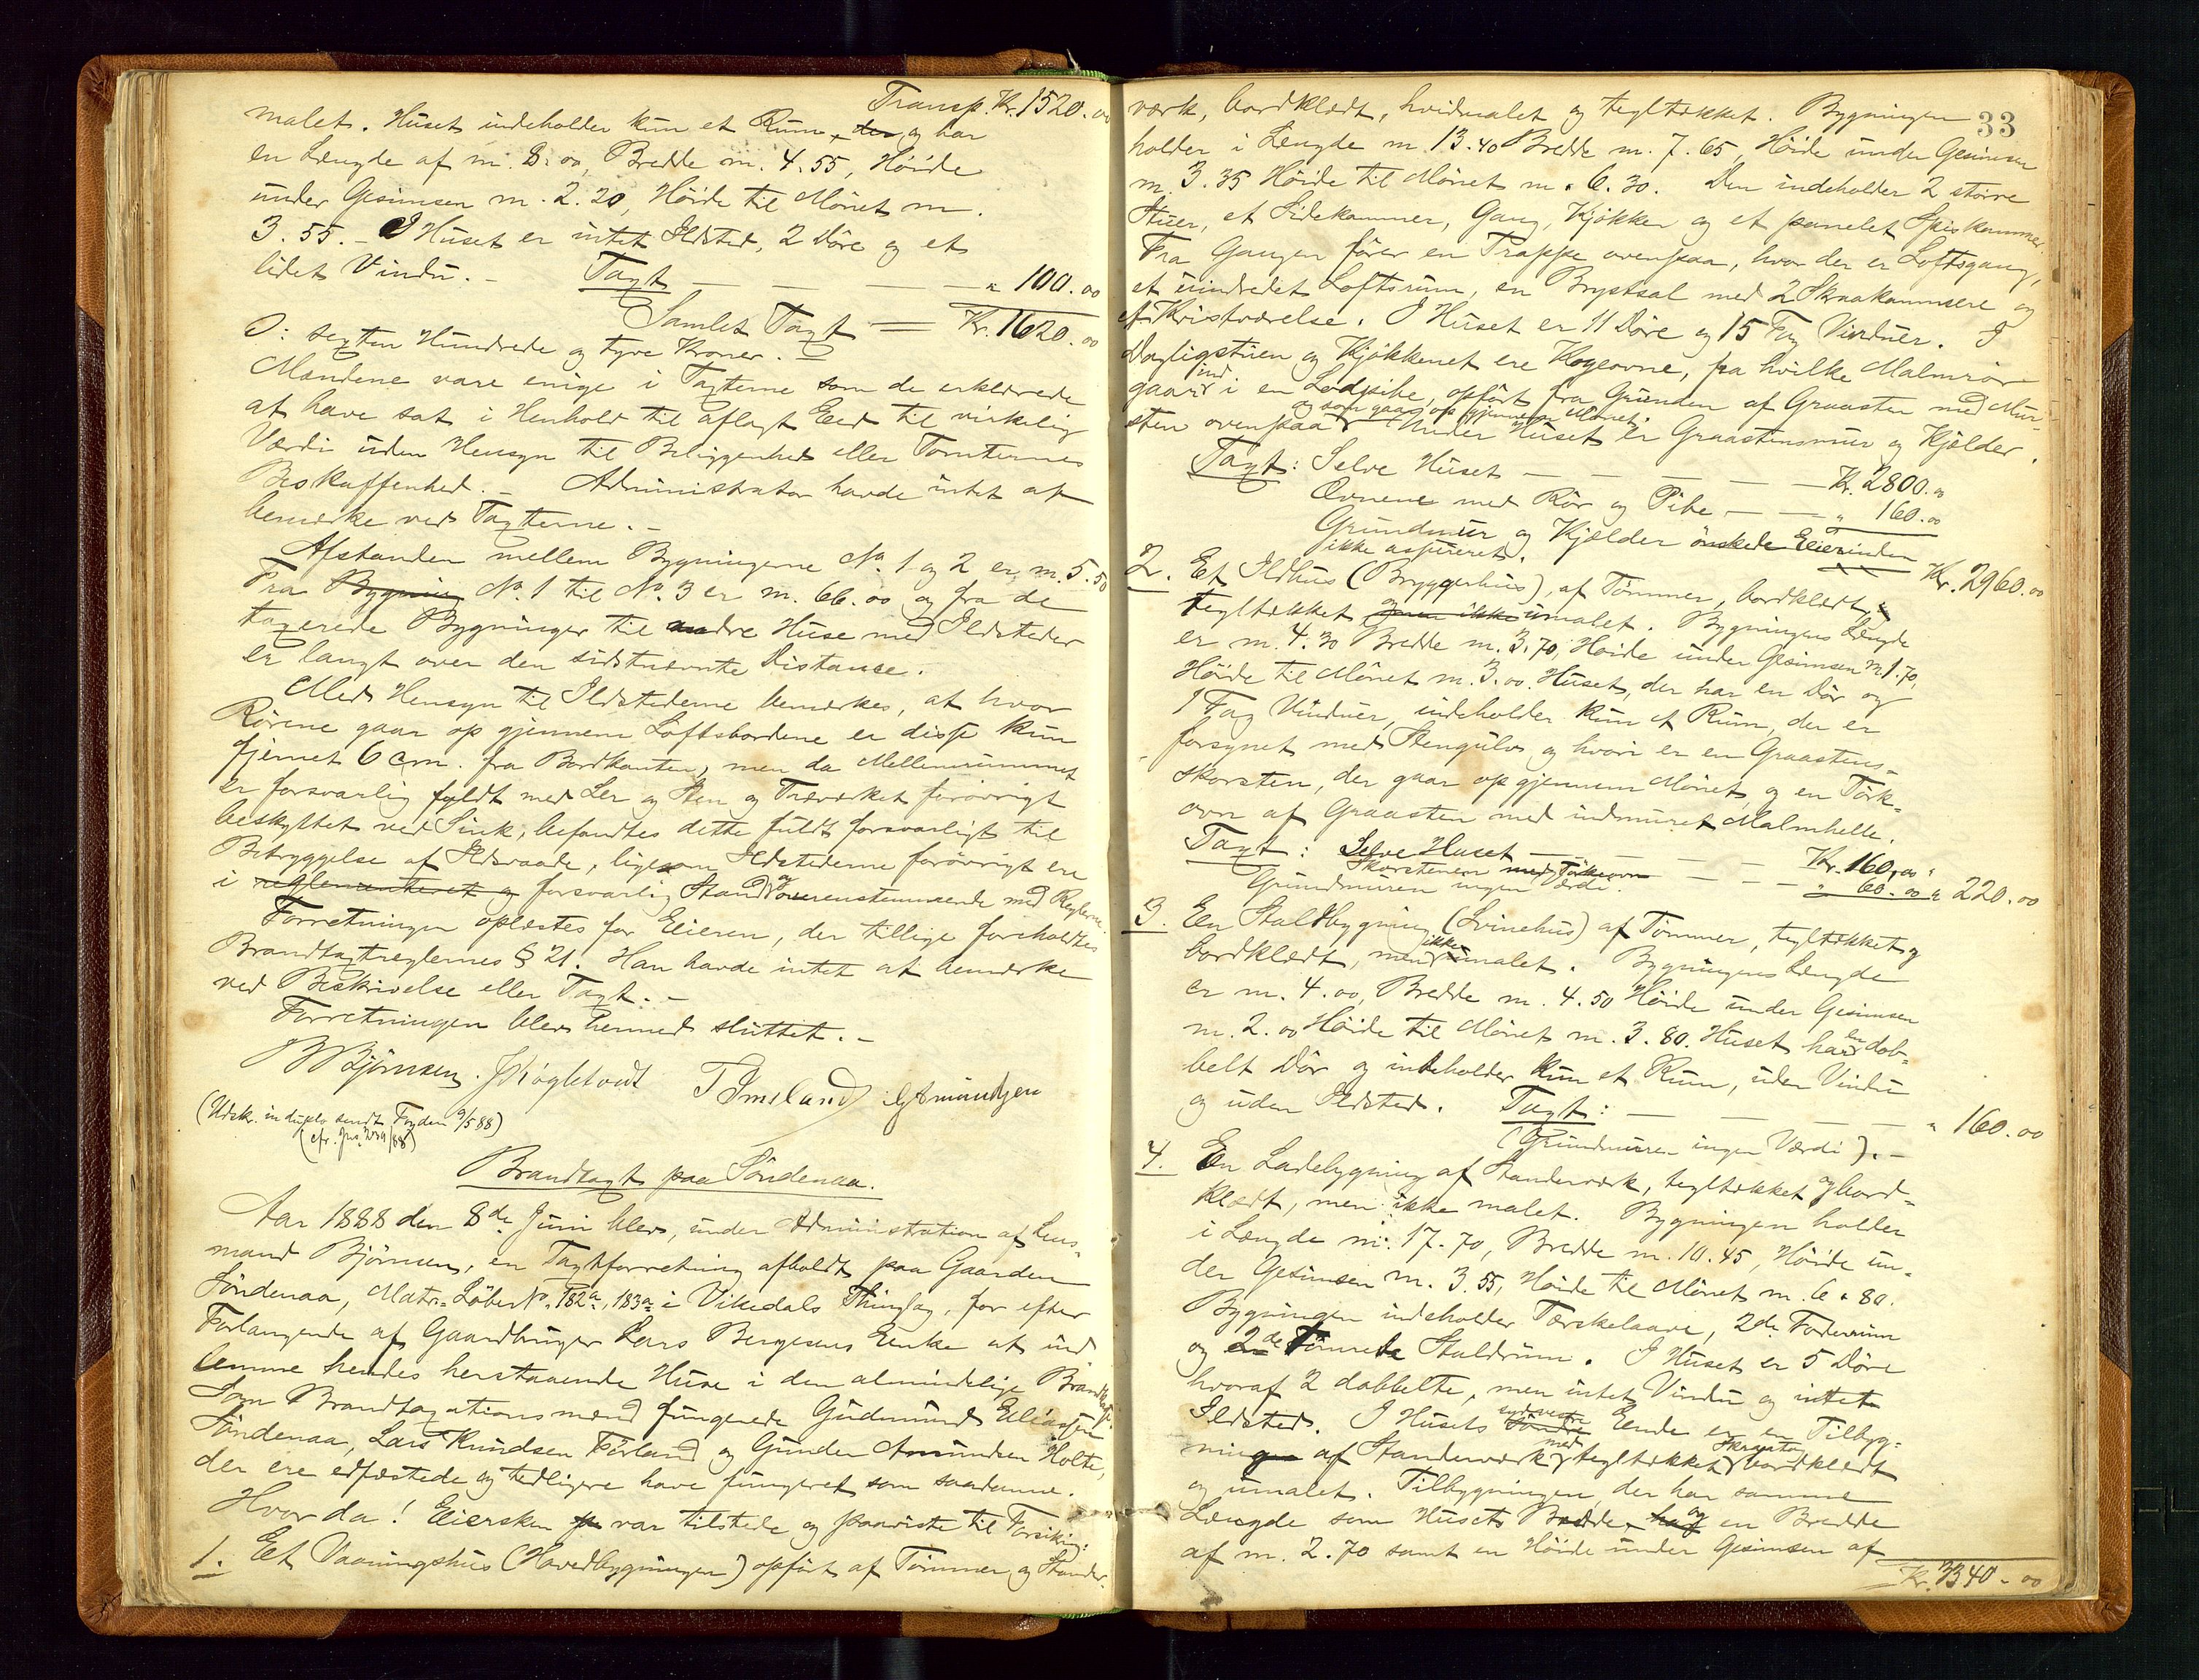 Transp. Kr. 1520.00
malet. Huset indeholder kun et Rum, der og har
en Længde af m. 8.00, Bredde m. 4.55, Höide
under Gesimsen m. 2.20, Höide til Mönet m.
3.55. - I Huset er intet Ildsted, 2 Döre og et
lidet Vindu. - Taxt — — — — " 100.00
Samlet Taxt = Kr. 1620.00
ɔ: sexten Hundrede og tyve Kroner. -
Mændene vare enige i Taxterne som de erklærede
at have sat i Henhold til aflagt Eed til virkelig
Værdi uden Hensyn til Beliggenhed eller Tomternes
Beskaffenhed. - Administrator havde intet at
bemærke ved Taxterne. -
Afstanden mellem Bygningerne No. 1 og 2 er m. 5.50
Fra Bygning No. 1 til No. 3 er m. 66.00 og fra de
taxerede Bygninger til andre Huse med Ildsteder
er langt over den sidstnævnte Distance.
Med Hensyn til Ildstederne bemærkes, at hvor
Rörene gaar op gjennem Loftsbordene er disse kun
fjernet 6 cm. fra Bordkanten, men da Mellemrummet
er forsvarlig fyldt med Ler og Sten og Træværket forövrigt
beskyttet ved Sink, befandtes dette fuldt forsvarligt til
Betryggelse af Ildsvaade, ligesom Ildstederne forövrigt ere
i reglementeret og forsvarlig Stand og overensstemmende med Reglerne.
Forretningen oplæstes for Eieren, der tillige foreholdtes
Brandtaxtreglernes § 21. Han havde intet at bemærke
ved Beskrivelse eller Taxt. -
Forretningen blev hermed sluttet. -
B Björnsen. T Imsland G Amundsen
(Udskr. in duplo sendt Fogden 9/5 88)
Brandtaxt paa Söndenaa.
Aar 1888 den 8de Juni blev, under Administration af Lens-
mand Björnsen, en Taxtforretning afholdt paa Gaarden
Söndenaa, Matr. Löbe No. 182a, 183a i Vikedals Thinglag, for efter
Forlangende af Gaardbruger Lars Bergesens Enke at ind
lemme hendes herstaaende Huse i den almindelige Brandkasse.
Som Brandtaxationsmænd fungerede Gudmund Eliassen
Söndenaa, Lars Knudsen Förland og Gunder Amundsen Holte,
der ere edfæstede og tidligere have fungeret som saadanne.
Hvor da! Eiersken var tilstede og paaviste til Forsikring:
1. Et Vaaningshus (Hovedbygningen) opfört af Tömmer og Stander-
33
værk, bordklædt, hvidmalet og tegltækket. Bygningen
holder i Længde m. 13.40 Bredde m. 7.65, Höide under Gesimsen
m. 3.35 Höide til Mönet m. 6.30. Den indeholder 2 större
Stuer, et Sidekammer, Gang, Kjökken og et panelet Spiskammer.
Fra Gangen förer en Trappe ovenpaa, hvor der er Loftsgang,
et uindredet Loftsrum, en Brystsal med 2 Skraakammere og
et Kvistværelse. I Huset er 11 Döre og 15 Fag Vinduer. I
Dagligstuen og Kjökkenet ere Kogeovne, fra hvilke Malmrör
gaar ind i en Lodpibe, opfört fra Grunden af Graasten med Mur-
sten ovenpaa og som gaar op gjennem Mönet. Under Huset er Graastensmur og Kjælder.
Taxt: Selve Huset — — — — Kr. 2800.00
Ovnene med Rör og Pibe — — " 160.00
Grundmur og Kjælder önskede Eierinden
ikke assureret. Kr. 2960.00
2. Et Ildhus (Bryggerhus), af Tömmer, bordklædt,
tegltækket og men ikke umalet. Bygningens Længde
er m. 4.30 Bredde m. 3.70, Höide under Gesimsen m. 1.70,
Höide til Mönet m. 3.00. Huset, der har en Dör og
1 Fag Vinduer, indeholder kun et Rum, der er
forsynet med Stengulv og hvori er en Graastens-
skorsten, der gaar op gjennem Mönet, og en Törk-
ovn af Graasten med indmuret Malmhelle.
Taxt: Selve Huset — — — — Kr. 160,00
Skorstenen med Törkeovn — — — " 60.00 " 220.00
Grundmuren ingen Værdi.
3. En Staldbygning (Svinehus) af Tömmer, tegltækket og
bordklædt, men ikke umalet. Bygningens Længde
er m. 4.00, Bredde m. 4.50 Höide under Gesimsen
m. 2.00 Höide til Mönet m. 3.80. Huset har en dob-
belt Dör og indeholder kun et Rum, uden Vindu
og uden Ildsted. Taxt: — — — — " 160.00
(Grundmuren ingen Værdi). -
4. En Ladebygning af Standerværk, tegltækket og bord-
klædt, men ikke malet. Bygningen holder
i Længde m. 17.70, Bredde m. 10.45, Höide un-
der Gesimsen m. 3.55, Höide til Mönet m. 6.80.
Bygningen indeholder Tærskelaave, 2de Foderrum
og 2de tömrede Staldrum. I Huset er 5 Döre
hvoraf 2 dobbelte, men intet Vindu og intet
Ildsted. I Husets söndre sydvestre Ende er en Tilbyg-
ningen af Standerværk med tegltækket Skraatag, bordklædt
og umalet. Tilbygningen, der har samme
Længde som Husets Bredde, har og en Bredde
af m. 2.70 samt en Höide under Gesimsen af
Kr. 3340.00